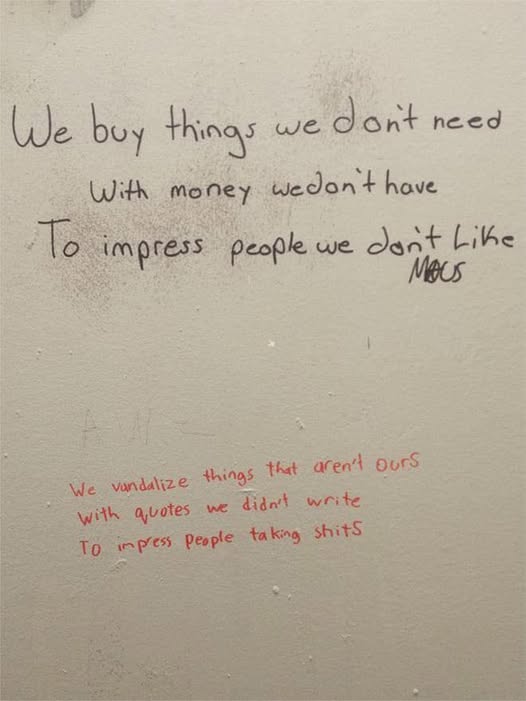 We buy things we don't need
With money we don't have
To impress people we don't Like
We vandalize things that aren't ours
With quotes we didn't write
To impress people taking shits